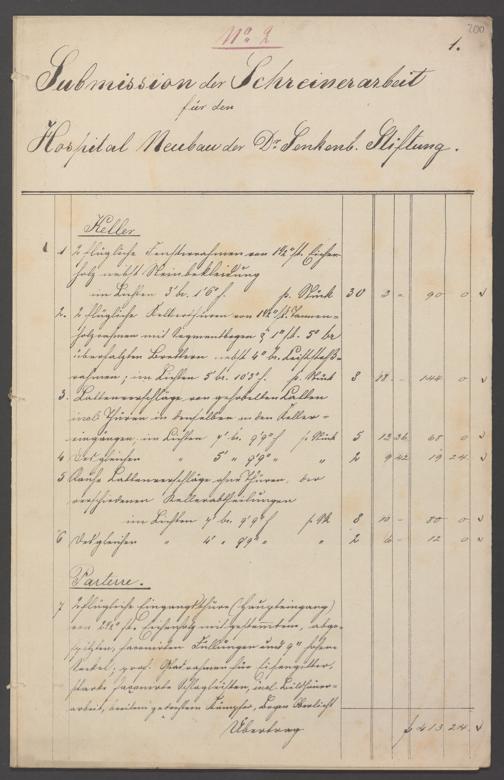 200
No 2
1.
Submission der Schreinerarbeit
für den
Hospital Neubau der Dr Senkenb. Stiftung.
Keller
1 2 flügliche Fensterrahmen von 1¼" st. Eichen-
holz nebst Steinbekleidung
im Lichten 3' br. 1'6" h. p. Stück 30 3 - 90 0
2. 2 flügliche Kellerthüren von 1¼" st. Tannen-
holzrahmen mit Segmentbogen 1" st. 5" br
überfalzten Brettern nebst 4" br.
rahmen; im Lichten 5' br. 10'3" h. p. Stück 8 18 - 144 0
3. Lattenverschläge, von gehobelten Latten
incl. Thüren in denselben in den Keller-
eingängen, im Lichten br. 9'9" h p Stück 5 68 0
4 Desgleichen " 5' " 9'9" " " 2 9 42 19 24
5 Rauhe Lattenverschläge, ohne Thüren, der
verschiedenen Kellerabtheilungen
im Lichten br. 9'9" h p St. 8 10 - 80 0
6 Desgleichen " 4' " 9'9" " " 2 6 - 12 0
Parterre.
7 2 flügliche Eingangsthüre (Haupteingang)
von 2¼" st. Eichenholz mit gestemmten, abge-
Füllungen und 9" hohem
Sockel; Glasrahmen für Eisengitter,
starke Schlagleisten, incl. Bildhauer-
arbeit, Kämpfer, Oberlicht
Übertrag f 413 24